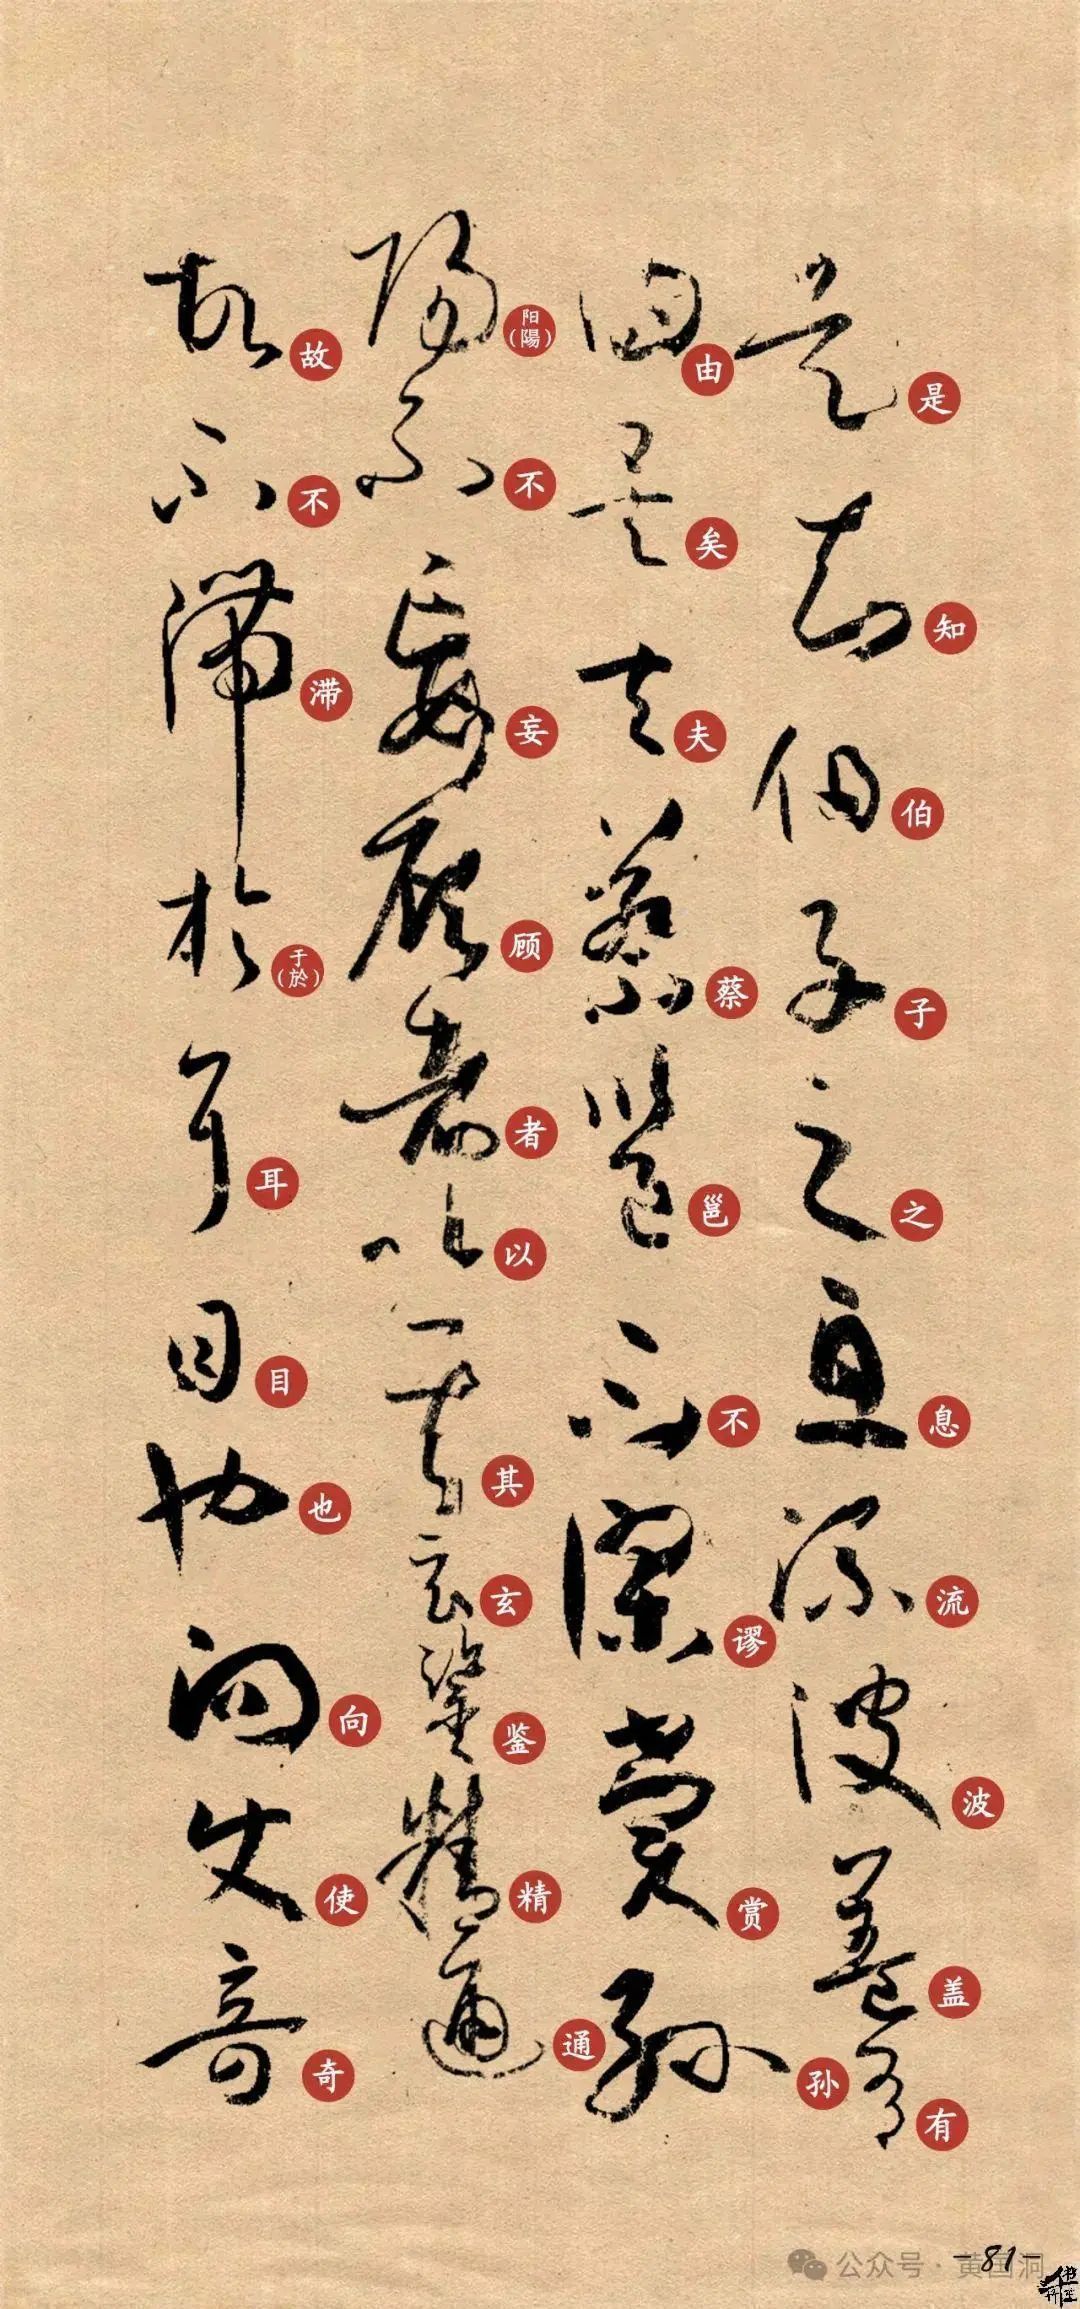 是知伯子之息流波盖有
由矣夫蔡邕不谬赏孙
阳(陽)不妄顾者以其玄鉴精通
故不滞于(於)耳目也向使奇
-81-
公众号·黄国洞